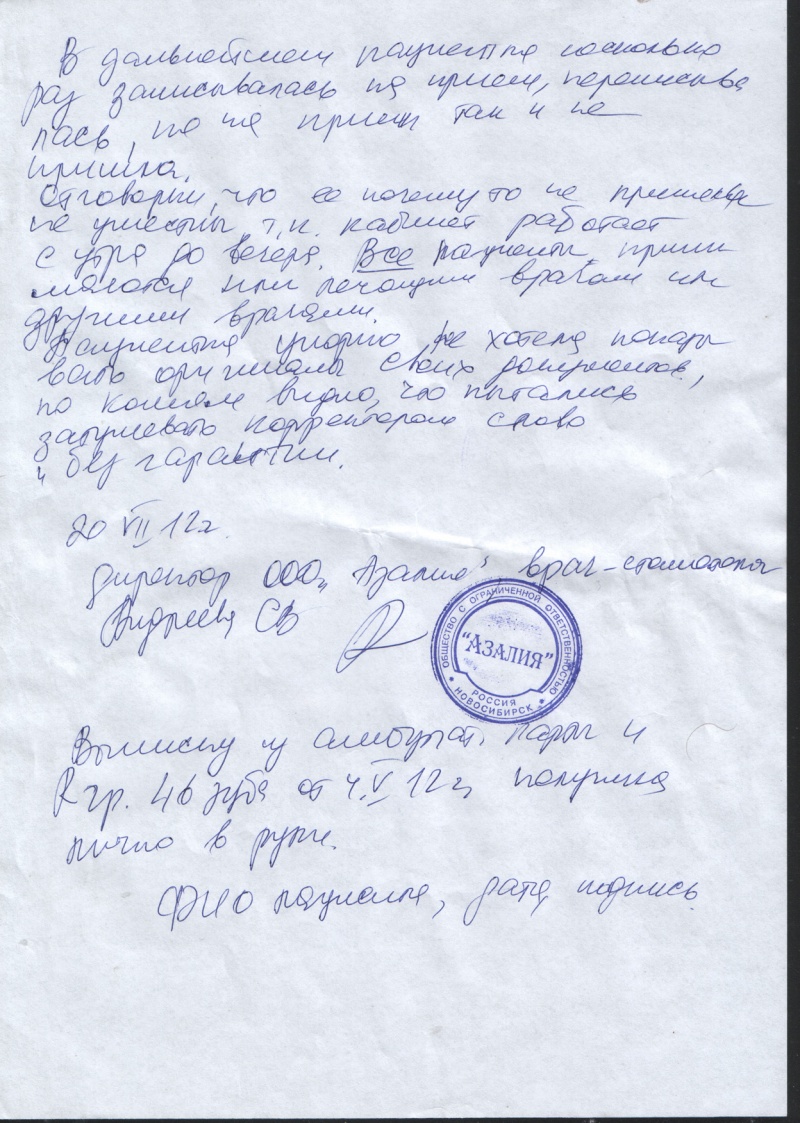 В дальнейшем пациентка несколько
раз записывалась на прием, переписыва
лась, но на прием так и не
пришла.
Отговорки, что ее почему то не приняли
не уместны, т.к. кабинет работает
с утра до вечера. Все пациенты прини
маются или лечащим врачом или
другими врачами.
Пациентка упорно не хотела показы
вать оригиналы своих документов,
по копиям видно, что пытались
затушевать корректором слово
"без гарантии.
20 VII 12г.
директор ООО "Азалия" врач-стоматолог
Андреева СВ
ОБЩЕСТВО С ОГРАНИЧЕННОЙ ОТВЕТСТВЕННОСТЬЮ
"АЗАЛИЯ"
РОССИЯ
НОВОСИБИРСК
Выписку из амбулат. карты и
Rгр. 46 зуба от 4.V 12г, получила
лично в руки.
ФИО пациента, дата, подпись.